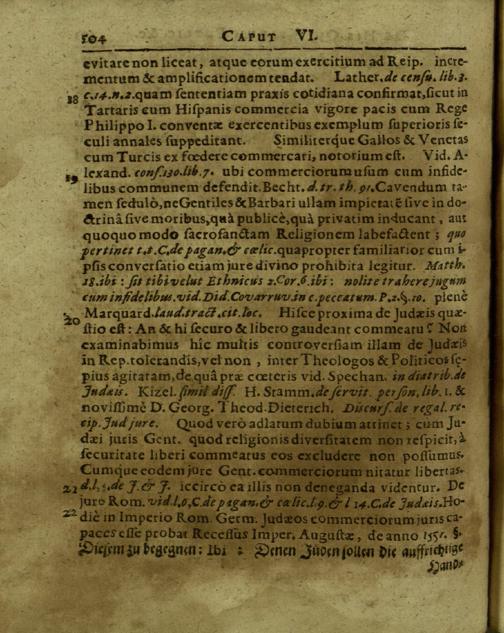 504 CAPUT VI.
evitare non liceat, atque eorum exercitium ad Reip. incre-
mentum & amplificationem tendat. Lather. de censu. lib. 3.
18 c. 14. n. 2. quam sententiam praxis cotidiana confirmat, sicut in
Tartaris cum Hispanis commercia vigore pacis cum Rege
Philippo I. conventæ exercentibus exemplum superioris se-
culi annales suppeditant. Similiterque Gallos & Venetas
cum Turcis ex fœdere commercari, notorium est. Vid. A-
19 lexand. cons. 130. lib. 7. ubi commerciorum usum cum infide-
libus communem defendit. Becht. d. tr. th. 91. Cavendum ta-
men sedulò, ne Gentiles & Barbari ullam impietatē sive in do-
ctrinâ sive moribus, quà publicè, quà privatim inducant, aut
quoquo modo sacrosanctam Religionem labefactent; quo
pertinet t. t. C. de pagan. & cælic. quapropter familiarior cum i-
psis conversatio etiam jure divino prohibita legitur. Matth.
18. ibi: sit tibi velut Ethnicus 2. Cor. 6. ibi: nolite trahere jugum
cum infidelibus. vid. Did. Covarruv. in c. peccatum. P. 2. §. 10. plenè
20 Marquard. laud. tract. cit. loc. Hisce proxima de Judæis quæ-
stio est: An & hi securo & libero gaudeant commeatu? Non
examinabimus hîc multis controversiam illam de Judæis
in Rep. tolerandis, vel non, inter Theologos & Politicos sę-
pius agitatam, de quâ præ cœteris vid. Spechan. in diatrib. de
Judæis. Kizel. simil. diss. H. Stamm. de servit. person. lib. 1. &
novissimè D. Georg. Theod. Dieterich. Discurs. de regal. re-
cip. Jud jure. Quod verò adlatum dubium attinet; cum Ju-
dæi juris Gent. quod religionis diversitatem non respicit, à
securitate liberi commeatus eos excludere non possumus.
Cumque eodem jure Gent. commerciorum nitatur libertas.
21 d. l. 5. de J. & J. iccirco ea illis non deneganda videntur. De
jure Rom. vid. l. 6. C. de pagan. & cælic. l. 9. & l 14. C. de Judæis. Ho-
22 diè in Imperio Rom. Germ. Judæos commerciorum juris ca-
paces esse probat Recessus Imper. Augustæ, de anno 1551. §.
Diesem zu begegnen: Ibi: Denen Jüden sollen die auffrichtige
Hand-